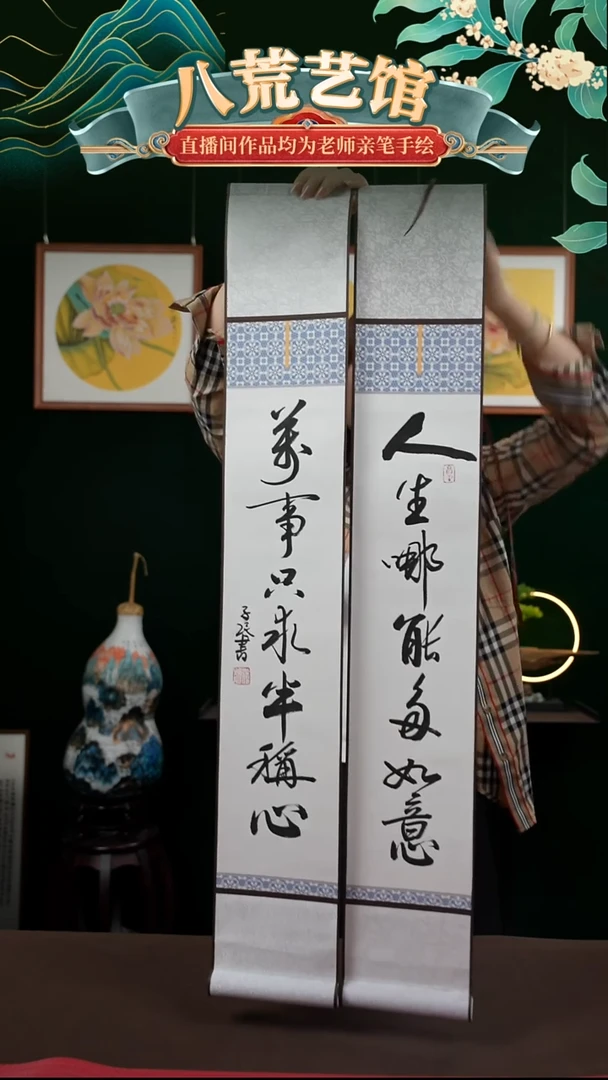 八荒艺馆
直播间作品均为老师亲笔手绘
人生哪能多如意
萬事只求半稱心